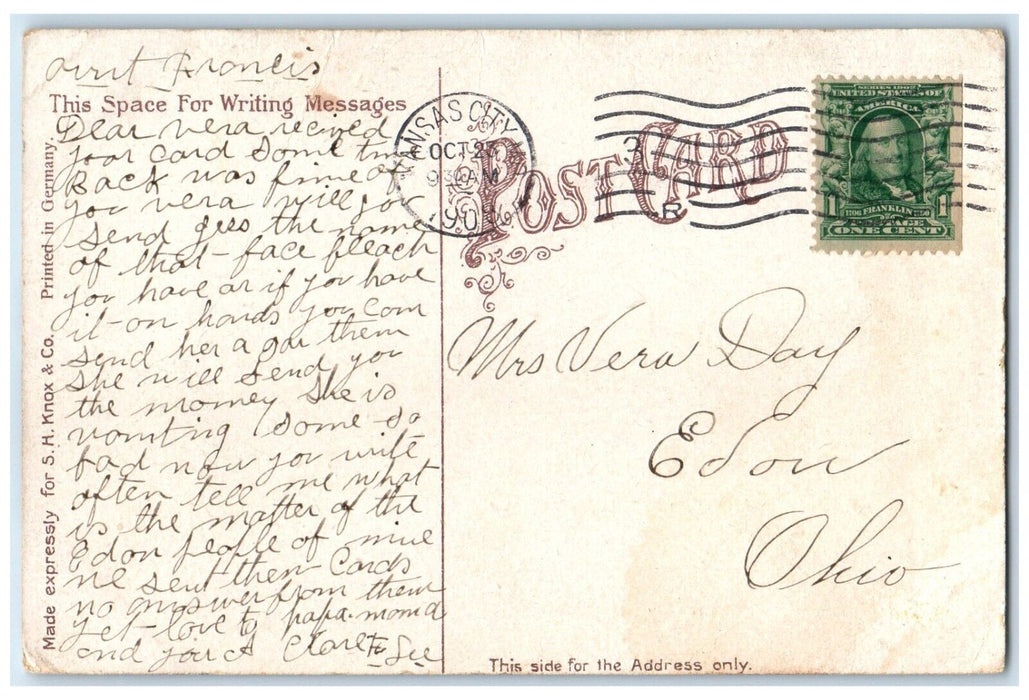 Aunt Francis
This Space For Writing Messages
Dear vera recived
your card some time
Back was fime of
you vera will you
send gees the name
of that face bleach
you have or if you have
it on hands you can
send her a gar them
she will send you
the money she is
vomting some so
bad now you write
often tell me what
is the matter of the
Edon people of mine
ne sent them Cards
no answer from them
yet love to papa mom d
and you A
Printed in Germany.
Made expressly for S. H. Knox & Co.
KANSAS CITY
OCT 27
930 AM
POST CARD
3
R
SERIES 1902
UNITED STATES OF
AMERICA
1 1706 FRANKLIN 1790 1
POSTAGE
ONE CENT
Mrs Vera Day
Edon
Ohio
This side for the Address only.